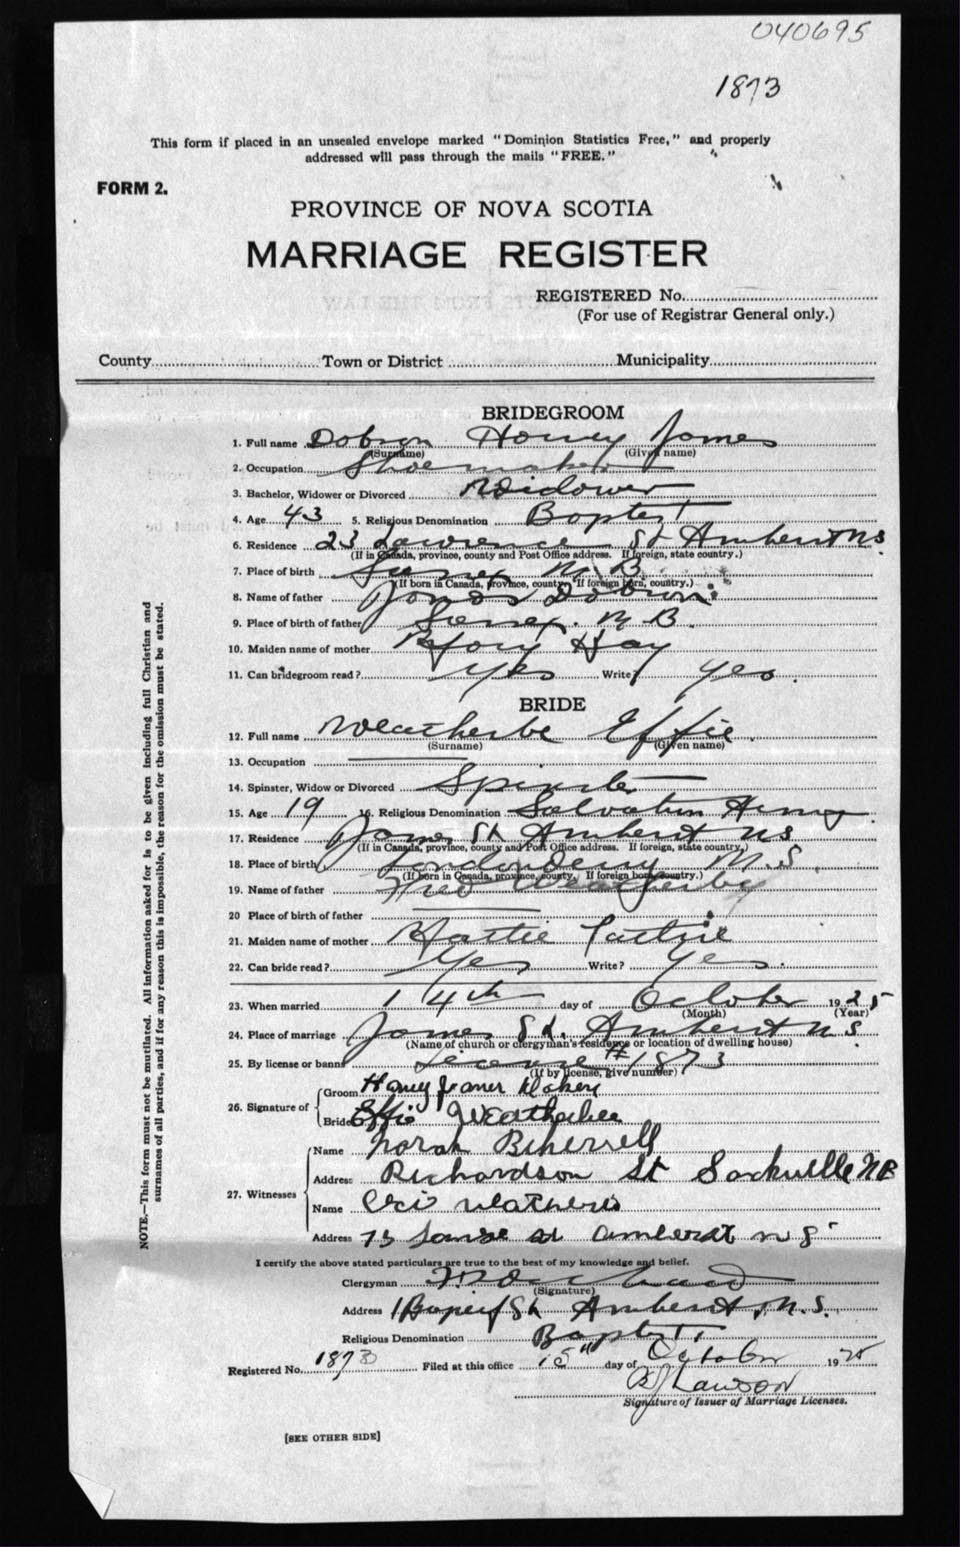 040695
1873
This form if placed in an unsealed envelope marked "Dominion Statistics Free," and properly
addressed will pass through the mails "FREE."
FORM 2.
PROVINCE OF NOVA SCOTIA
MARRIAGE REGISTER
REGISTERED No.
(For use of Registrar General only.)
County Town or District Municipality
BRIDEGROOM
1. Full name Dobson Harvey James
(Surname) (Given name)
2. Occupation Shoemaker
3. Bachelor, Widower or Divorced Widower
4. Age 43 5. Religious Denomination Baptist
6. Residence 23 Lawrence St Amherst NS
(If in Canada, province, county and Post Office address. If foreign, state country.)
7. Place of birth Sussex N.B.
(If born in Canada, province, county. If foreign born, country.)
8. Name of father James Dobson
9. Place of birth of father Sussex. N.B.
10. Maiden name of mother Mary Hay
11. Can bridegroom read? Yes Write? Yes.
BRIDE
12. Full name Weatherbe Effie
(Surname) (Given name)
13. Occupation
14. Spinster, Widow or Divorced Spinster
15. Age 19 16. Religious Denomination Salvation Army
17. Residence James St Amherst NS
(If in Canada, province, county and Post Office address. If foreign, state country.)
18. Place of birth Londonderry N.S.
(If born in Canada, province, county. If foreign born, country.)
19. Name of father Fred Weatherby
20 Place of birth of father
21. Maiden name of mother Hattie
22. Can bride read? Yes Write? Yes.
23. When married 14th day of October 1925
(Month) (Year)
24. Place of marriage James St. Amherst N.S.
(Name of church or clergyman's residence or location of dwelling house)
25. By license or banns License # 1873
(If by license, give number)
26. Signature of
Groom Harvey James
Bride Effie Weatherbee
27. Witnesses
Name Norah
Address Richardson St Sackville NB
Name
Address St Amherst N S
I certify the above stated particulars are true to the best of my knowledge and belief.
Clergyman
(Signature)
Address St. Amherst, N.S.
Religious Denomination Baptist
Registered No. 1873 Filed at this office 15" day of October 1925
Lawson
Signature of Issuer of Marriage Licenses.
[SEE OTHER SIDE]
NOTE.—This form must not be mutilated. All information asked for is to be given including full Christian and
surnames of all parties, and if for any reason this is impossible, the reason for the omission must be stated.